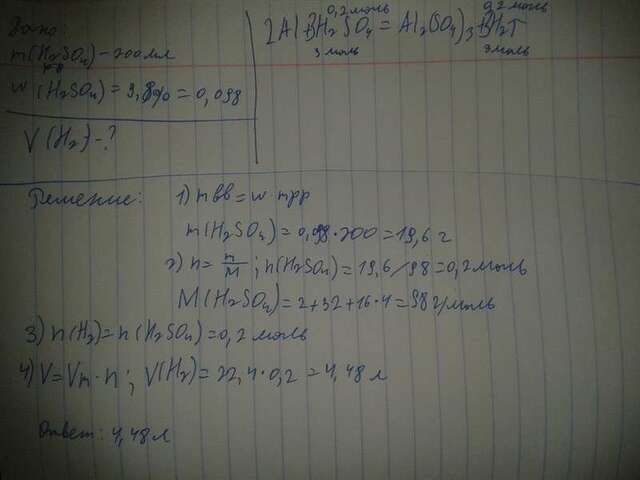 Дано:
m(H₂SO₄) - 200 мл
w(H₂SO₄) = 9,8% = 0,098
V(H₂) - ?
0,2 моль 0,2 моль
2Al + 3H₂SO₄ = Al₂(SO₄)₃ + 3H₂↑
3 моль 3 моль
Решение: 1) mвв = w · mрр
m(H₂SO₄) = 0,098 · 200 = 19,6 г
2) n = m/M ; n(H₂SO₄) = 19,6/98 = 0,2 моль
M(H₂SO₄) = 2+32+16·4 = 98 г/моль
3) n(H₂) = n(H₂SO₄) = 0,2 моль
4) V = Vm · n ; V(H₂) = 22,4 · 0,2 = 4,48 л
Ответ: 4,48 л